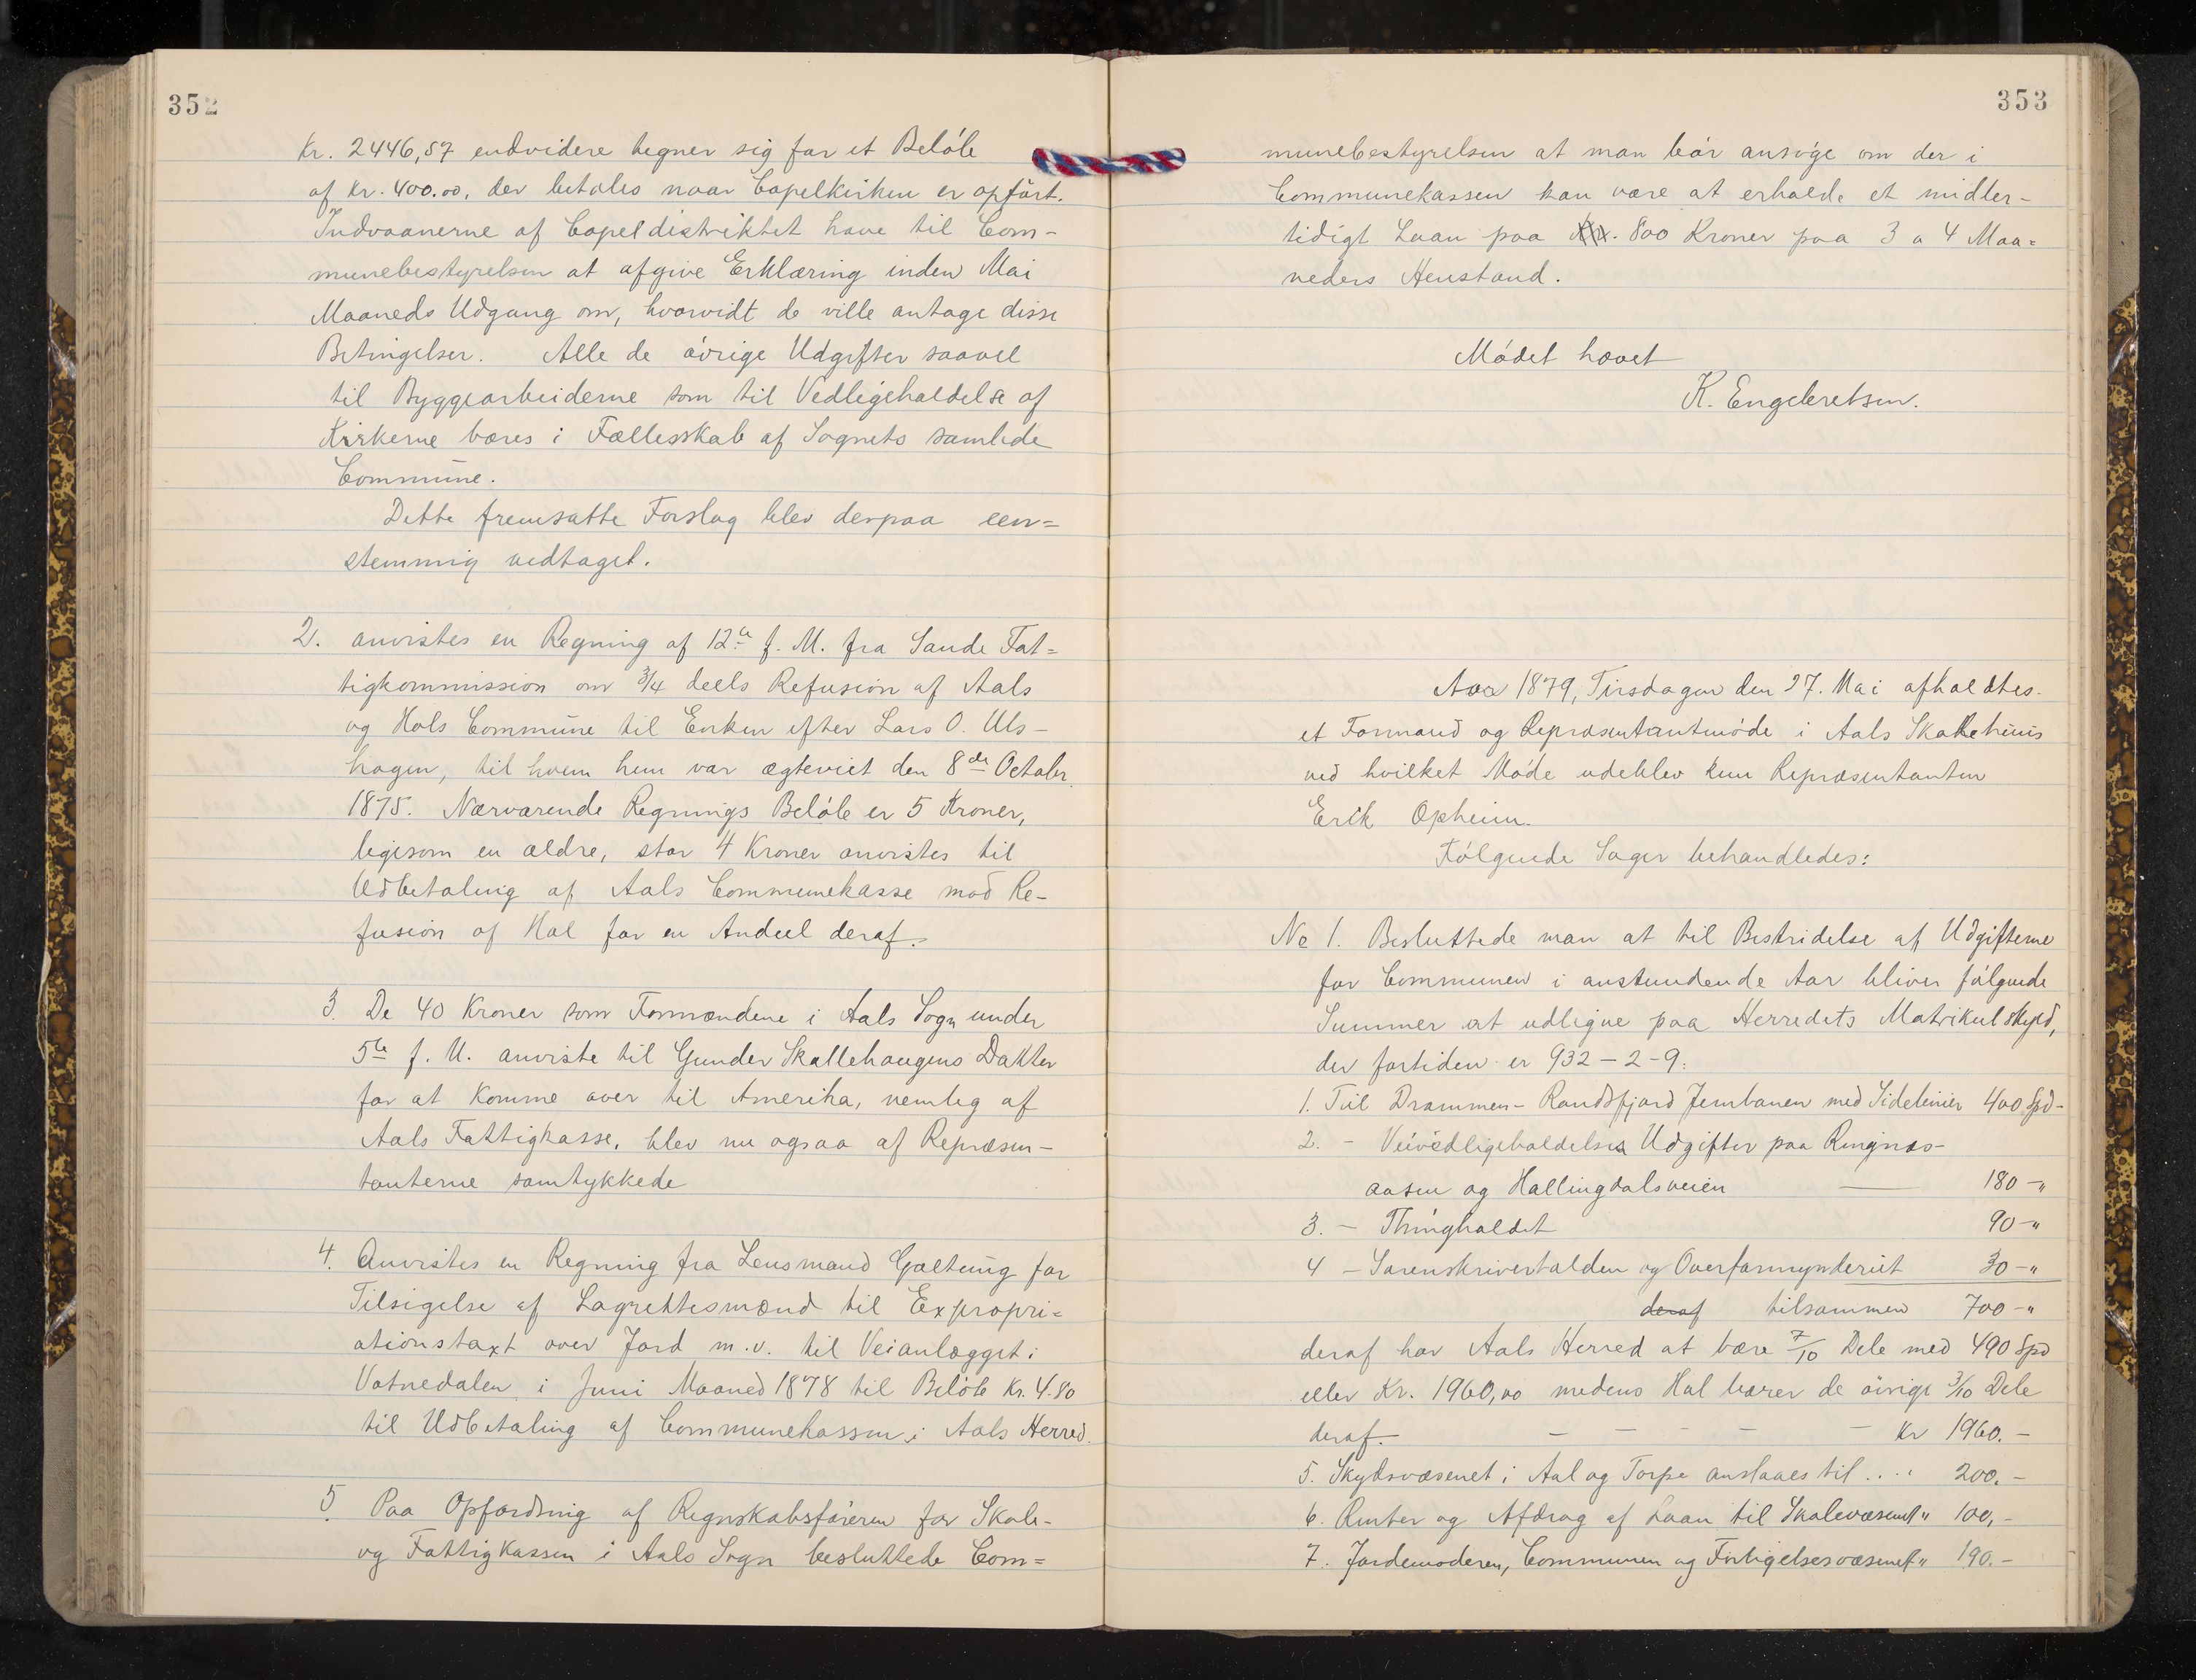 352
Kr. 2446,57 endvidere tegner sig for et Beløb
af Kr. 400.00, der betales naar Capelkirken er opført.
Indvaanerne af Capeldistriktet have til Com-
munebestyrelsen at afgive Erklæring inden Mai
Maaneds Udgang om, hvorvidt de ville antage disse
Betingelser. Alle de øvrige Udgifter saavel
til Byggearbeiderne som til Vedligeholdelse af
Kirkerne bæres i Fællesskab af Sognets samlede
Commune.
Dette fremsatte Forslag blev derpaa een=
stemmig vedtaget.
2. anvistes en Regning af 12te f. M. fra Sande Fat=
tigkommission om 3/4 deels Refusion af Aals
og Hols Commune til Enken efter Lars O. Uls-
hagen, til hvem hun var ægteviet den 8de October
1875. Nærværende Regnings Beløb er 5 Kroner,
ligesom en ældre, stor 4 Kroner anvistes til
Udbetaling af Aals Communekasse mod Re-
fusion af Hol for en Andeel deraf.
3. De 40 Kroner som Formændene i Aals Sogn under
5te f. M. anviste til Gunder Skallehaugens Datter
for at komme over til Amerika, nemlig af
Aals Fattigkasse, blev nu ogsaa af Repræsen-
tanterne samtykkede
4. Anvistes en Regning fra Lensmand Galtung for
Tilsigelse af Lagrettesmænd til Expropri=
ationstaxt over Jord m.v. til Veianlægget i
Votnedalen i Juni Maaned 1878 til Beløb Kr. 4.80
til Udbetaling af Communekassen i Aals Herred.
5. Paa Opfordring af Regnskabsføreren for Skole-
og Fattigkassen i Aals Sogn besluttede Com=
353
munebestyrelsen at man bør ansøge om der i
Communekassen kan være at erholde et midler-
tidigt Laan paa Kr. 800 Kroner paa 3 a 4 Maa=
neders Henstand.
Mødet hævet
K. Engebretsen.
Aar 1879, Tirsdagen den 27. Mai afholdtes
et Formand og Repræsentantmøde i Aals Skolehuus
ved hvilket Møde udeblev kun Repræsentanten
Erik Opheim.
Følgende Sager behandledes:
No 1. Besluttede man at til Bestridelse af Udgifterne
for Communen i anstundende Aar bliver følgende
Summer at udligne paa Herredets Matrikulskyld,
der fortiden er 932 - 2 - 9:
1. Til Drammen - Randsfjord Jernbanen med Sidelinier 400 Spd -
2. - Veivedligeholdelses Udgifter paa Ringnæs-
aasen og Hallingdalsveien 180 - "
3. - Thingholdet 90 - "
4 - Sorenskriverholden og Overformynderiet 30 - "
deraf tilsammen 700 - "
deraf har Aals Herred at bære 7/10 Dele med 490 Spd
eller Kr. 1960,00 medens Hol bærer de øvrige 3/10 Dele
deraf. - - - - - Kr 1960. -
5. Skydsvæsenet i Aal og Torpe anslaaes til .... 200. -
6. Renter og Afdrag af Laan til Skolevæsenet " 100, -
7. Jordemoderen, Communen og Forligelsesvæsenet " 190. -